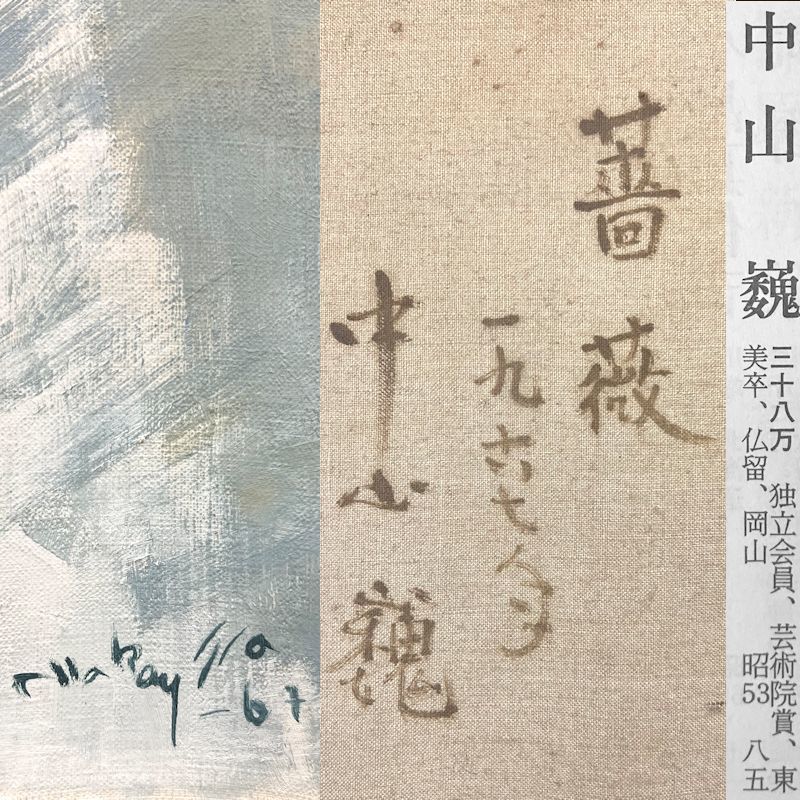 薔薇
一九六七年
中山巍
-67
中山 巍
三十八万 独立会員、芸術院賞、東
美卒、仏留、岡山 昭53 八五